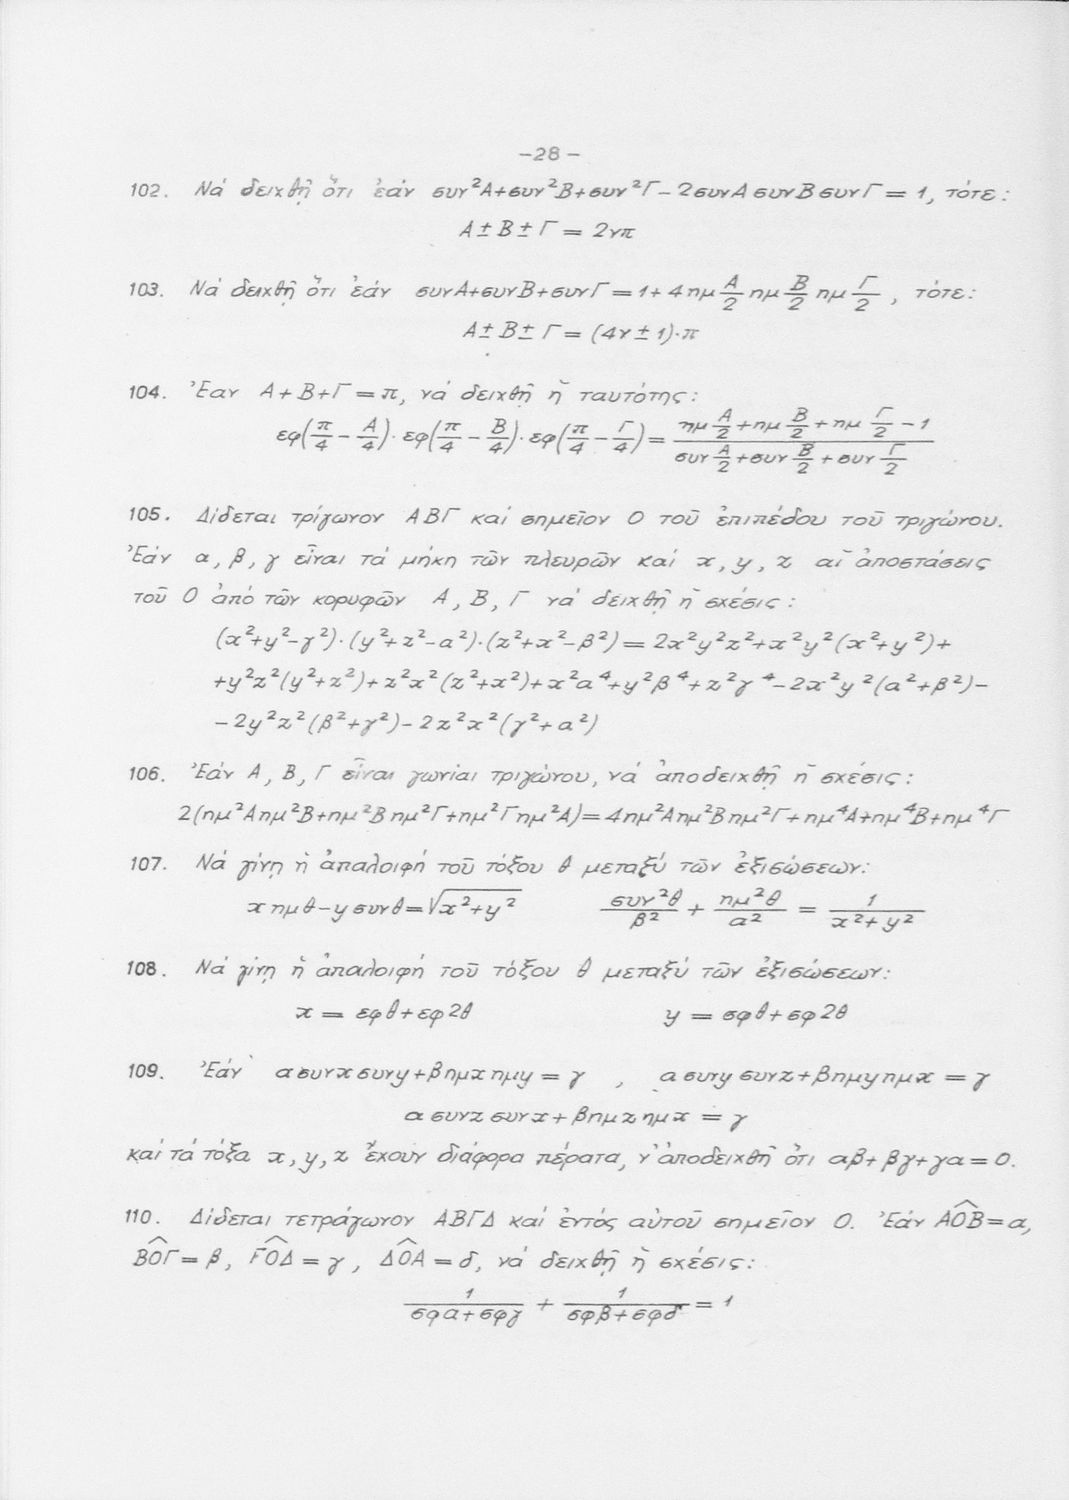 -28-
102. Νά δειχθῆ ὅτι ἐάν συν²Α+συν²Β+συν²Γ-2συνΑ συνΒ συνΓ = 1, τότε:
Α ± Β ± Γ = 2νπ
103. Νά δειχθῆ ὅτι ἐάν συνΑ+συνΒ+συνΓ = 1+4ημ Α/2 ημ Β/2 ημ Γ/2 , τότε:
Α ± Β ± Γ = (4ν ± 1)·π
104. Ἐαν Α+Β+Γ = π, νά δειχθῆ ἡ ταυτότης:
εφ(π/4 - Α/4)·εφ(π/4 - Β/4)·εφ(π/4 - Γ/4) = (ημ Α/2 + ημ Β/2 + ημ Γ/2 - 1)/(συν Α/2 + συν Β/2 + συν Γ/2)
105. Δίδεται τρίγωνον ΑΒΓ καί σημεῖον Ο τοῦ ἐπιπέδου τοῦ τριγώνου.
Ἐάν α, β, γ εἶναι τά μήκη τῶν πλευρῶν καί x, y, z αἱ ἀποστάσεις
τοῦ Ο ἀπό τῶν κορυφῶν Α, Β, Γ νά δειχθῆ ἡ σχέσις:
(x²+y²-γ²)·(y²+z²-α²)·(z²+x²-β²) = 2x²y²z²+x²y²(x²+y²)+
+y²z²(y²+z²)+z²x²(z²+x²)+x²α⁴+y²β⁴+z²γ⁴-2x²y²(α²+β²)-
-2y²z²(β²+γ²)-2z²x²(γ²+α²)
106. Ἐάν Α, Β, Γ εἶναι γωνίαι τριγώνου, νά ἀποδειχθῆ ἡ σχέσις:
2(ημ²Αημ²Β+ημ²Βημ²Γ+ημ²Γημ²Α)=4ημ²Αημ²Βημ²Γ+ημ⁴Α+ημ⁴Β+ημ⁴Γ
107. Νά γίνῃ ἡ ἀπαλοιφή τοῦ τόξου θ μεταξύ τῶν ἐξισώσεων:
x ημθ-y συνθ=√(x²+y²) συν²θ/β² + ημ²θ/α² = 1/(x²+y²)
108. Νά γίνῃ ἡ ἀπαλοιφή τοῦ τόξου θ μεταξύ τῶν ἐξισώσεων:
x = εφθ+εφ2θ y = σφθ+σφ2θ
109. Ἐάν α συνx συνy+βημx ημy = γ , α συνy συνz+βημy ημx = γ
α συνz συνx+βημz ημx = γ
καί τά τόξα x, y, z ἔχουν διάφορα πέρατα, ν' ἀποδειχθῆ ὅτι αβ+βγ+γα = 0.
110. Δίδεται τετράγωνον ΑΒΓΔ καί ἐντός αὐτοῦ σημεῖον Ο. Ἐάν ΑΟ̂Β = α,
ΒΟ̂Γ = β, ΓΟ̂Δ = γ, ΔΟ̂Α = δ, νά δειχθῆ ἡ σχέσις:
1/(σφα+σφγ) + 1/(σφβ+σφδ) = 1